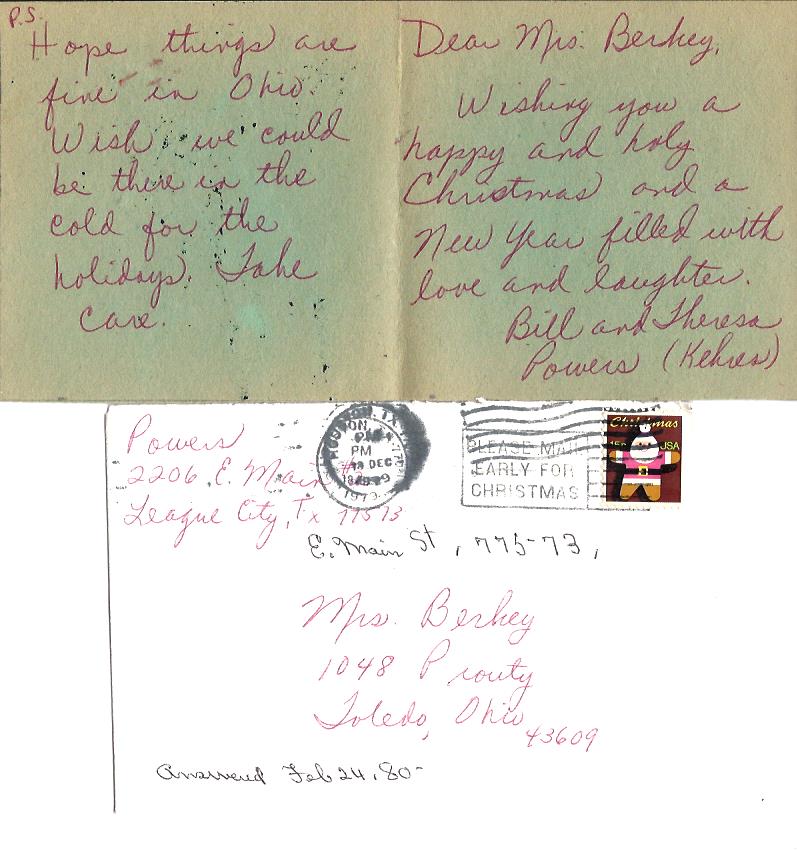 P.S.
Hope things are
fine in Ohio.
Wish we could
be there in the
cold for the
holidays. Take
care.
Dear Mrs. Berkey,
Wishing you a
happy and holy
Christmas and a
New Year filled with
love and laughter.
Bill and Theresa
Powers (Kehres)
Powers
2206 E. Main #
League City, Tx 77573
HOUSTON, TX
PM
DEC
1979
PLEASE MAIL
EARLY FOR
CHRISTMAS
Christmas
15c USA
E. Main St, 775-73,
Mrs. Berkey
1048 Prouty
Toledo, Ohio
43609
Answered Feb 24, 80-